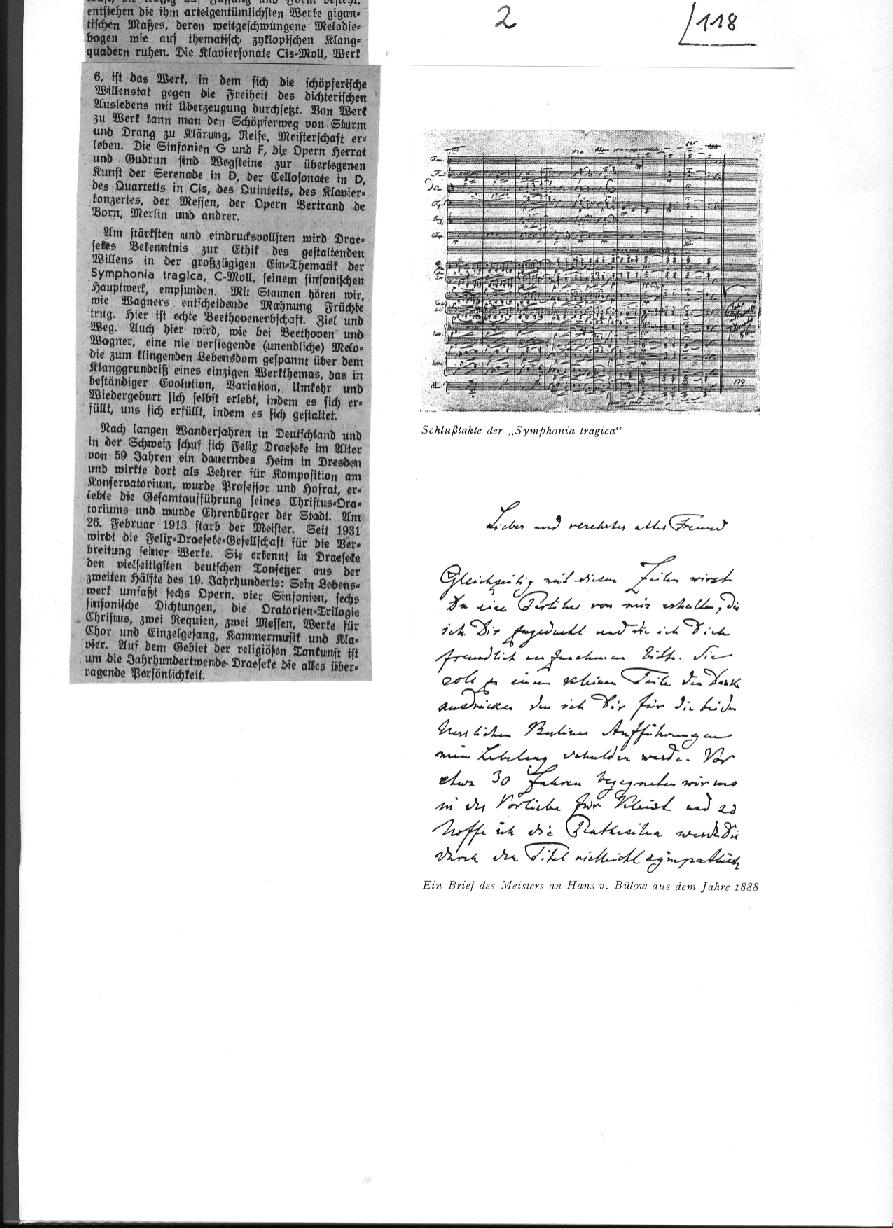 2
118
entstehen die ihm arteigentümlichsten Werke gigan-
tischen Maßes, deren weitgeschwungene Melodie-
bogen wie auf thematisch zyklopischen Klang-
quadern ruhen. Die Klaviersonate Cis-Moll, Werk
6, ist das Werk, in dem sich die schöpferische
Willenstat gegen die Freiheit des dichterischen
Auslebens mit Überzeugung durchsetzt. Von Werk
zu Werk kann man den Schöpferweg von Sturm
und Drang zu Klärung, Reife, Meisterschaft er-
leben. Die Sinfonien G und F, die Opern Herrat
und Gudrun sind Wegsteine zur überlegenen
Kunst der Serenade in D, der Cellosonate in D,
des Quartetts in Cis, des Quintetts, des Klavier-
konzertes, der Messen, der Opern Bertrand de
Born, Merlin und andrer.
Am stärksten und eindrucksvollsten wird Drae-
sekes Bekenntnis zur Ethik des gestaltenden
Willens in der großzügigen Ein-Thematik der
Symphonia tragica, C-Moll, seinem sinfonischen
Hauptwerk, empfunden. Mit Staunen hören wir,
wie Wagners entscheidende Mahnung Früchte
trug. Hier ist echte Beethovenerbschaft. Ziel und
Weg. Auch hier wird, wie bei Beethoven und
Wagner, eine nie versiegende (unendliche) Melo-
die zum klingenden Lebensdom gespannt über dem
Klanggrundriß eines einzigen Werkthemas, das in
beständiger Evolution, Variation, Umkehr und
Wiedergeburt sich selbst erlebt, indem es sich er-
füllt, uns sich erfüllt, indem es sich gestaltet.
Nach langen Wanderjahren in Deutschland und
in der Schweiz schuf sich Felix Draeseke im Alter
von 59 Jahren ein dauerndes Heim in Dresden
und wirkte dort als Lehrer für Komposition am
Konservatorium, wurde Professor und Hofrat, er-
lebte die Gesamtaufführung seines Christus-Ora-
toriums und wurde Ehrenbürger der Stadt. Am
26. Februar 1913 starb der Meister. Seit 1931
wirbt die Felix-Draeseke-Gesellschaft für die Ver-
breitung seiner Werke. Sie erkennt in Draeseke
den vielseitigsten deutschen Tonsetzer aus der
zweiten Hälfte des 19. Jahrhunderts: Sein Lebens-
werk umfaßt sechs Opern, vier Sinfonien, sechs
sinfonische Dichtungen, die Oratorien-Trilogie
Christus, zwei Requien, zwei Messen, Werke für
Chor und Einzelgesang, Kammermusik und Kla-
vier. Auf dem Gebiet der religiösen Tonkunst ist
um die Jahrhundertwende Draeseke die alles über-
ragende Persönlichkeit.
Schlußtakte der „Symphonia tragica"
Lieber und verehrter alter Freund
Gleichzeitig mit diesen Zeilen wirst
Du eine Partitur von mir erhalten, die
ich Dir zugedacht und die ich Dich
freundlich anzunehmen bitte. Sie
soll zu einem kleinen Teile den Dank
ausdrücken den ich Dir für die beiden
herrlichen Berliner Aufführungen
mein Lebelang schulden werde. Vor
etwa 30 Jahren begegneten wir uns
in der Vorliebe für Kleist und so
hoffe ich die Penthesilea werde Dir
durch den Titel vielleicht sympathisch
Ein Brief des Meisters an Hans v. Bülow aus dem Jahre 1888